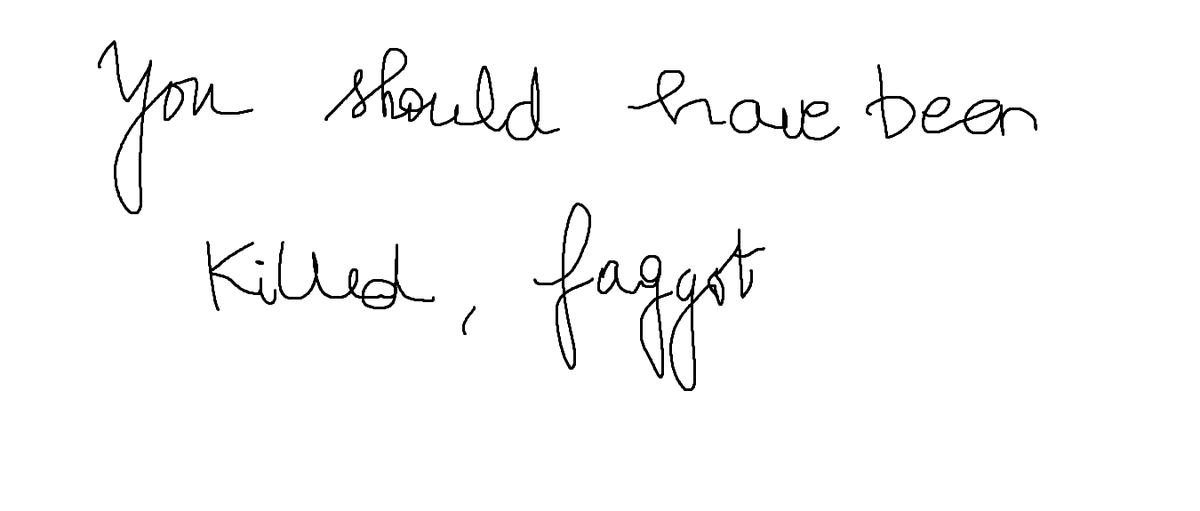 You should have been
Killed, faggot